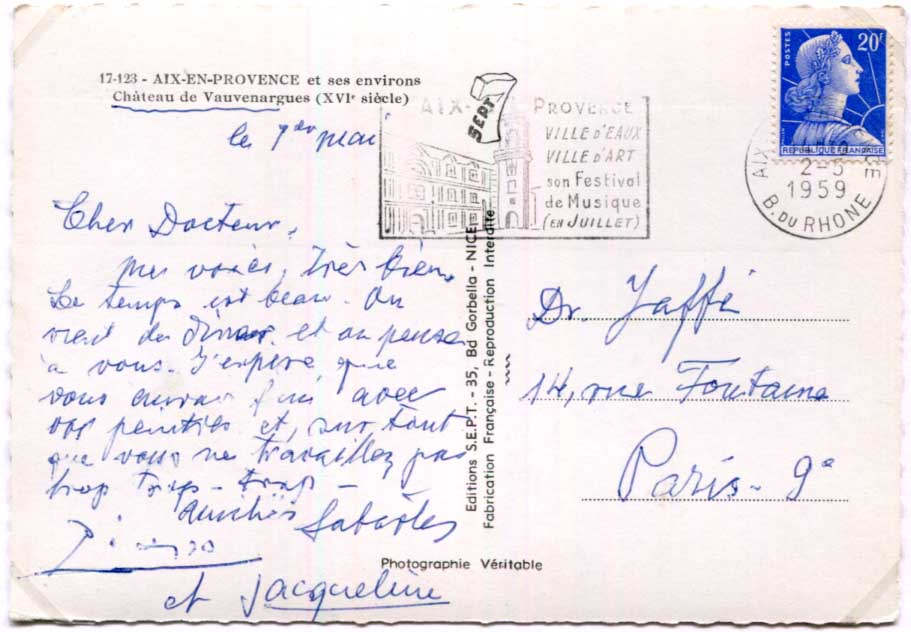 17-123 - AIX-EN-PROVENCE et ses environs
Château de Vauvenargues (XVIe siècle)
le 1er mai
Cher Docteur,
très bien.
Le temps est beau. On
vient de dîner et on pense
à vous. J'espère que
vous aurez fini avec
vos et, surtout
que vous ne travaillez pas
trop trop - trop -
Amitiés Sabartés
Picasso
et Jacqueline
Editions S.E.P.T. - 35, Bd Gorbella - NICE
Fabrication Française - Reproduction Interdite
Photographie Véritable
SEPT
AIX- PROVENCE
VILLE d'EAUX
VILLE d'ART
son Festival
de Musique
(en JUILLET)
POSTES
20F
REPUBLIQUE FRANÇAISE
AIX
2-5
1959
B. DU RHONE
Dr. Jaffé
14, rue Fontaine
Paris - 9e